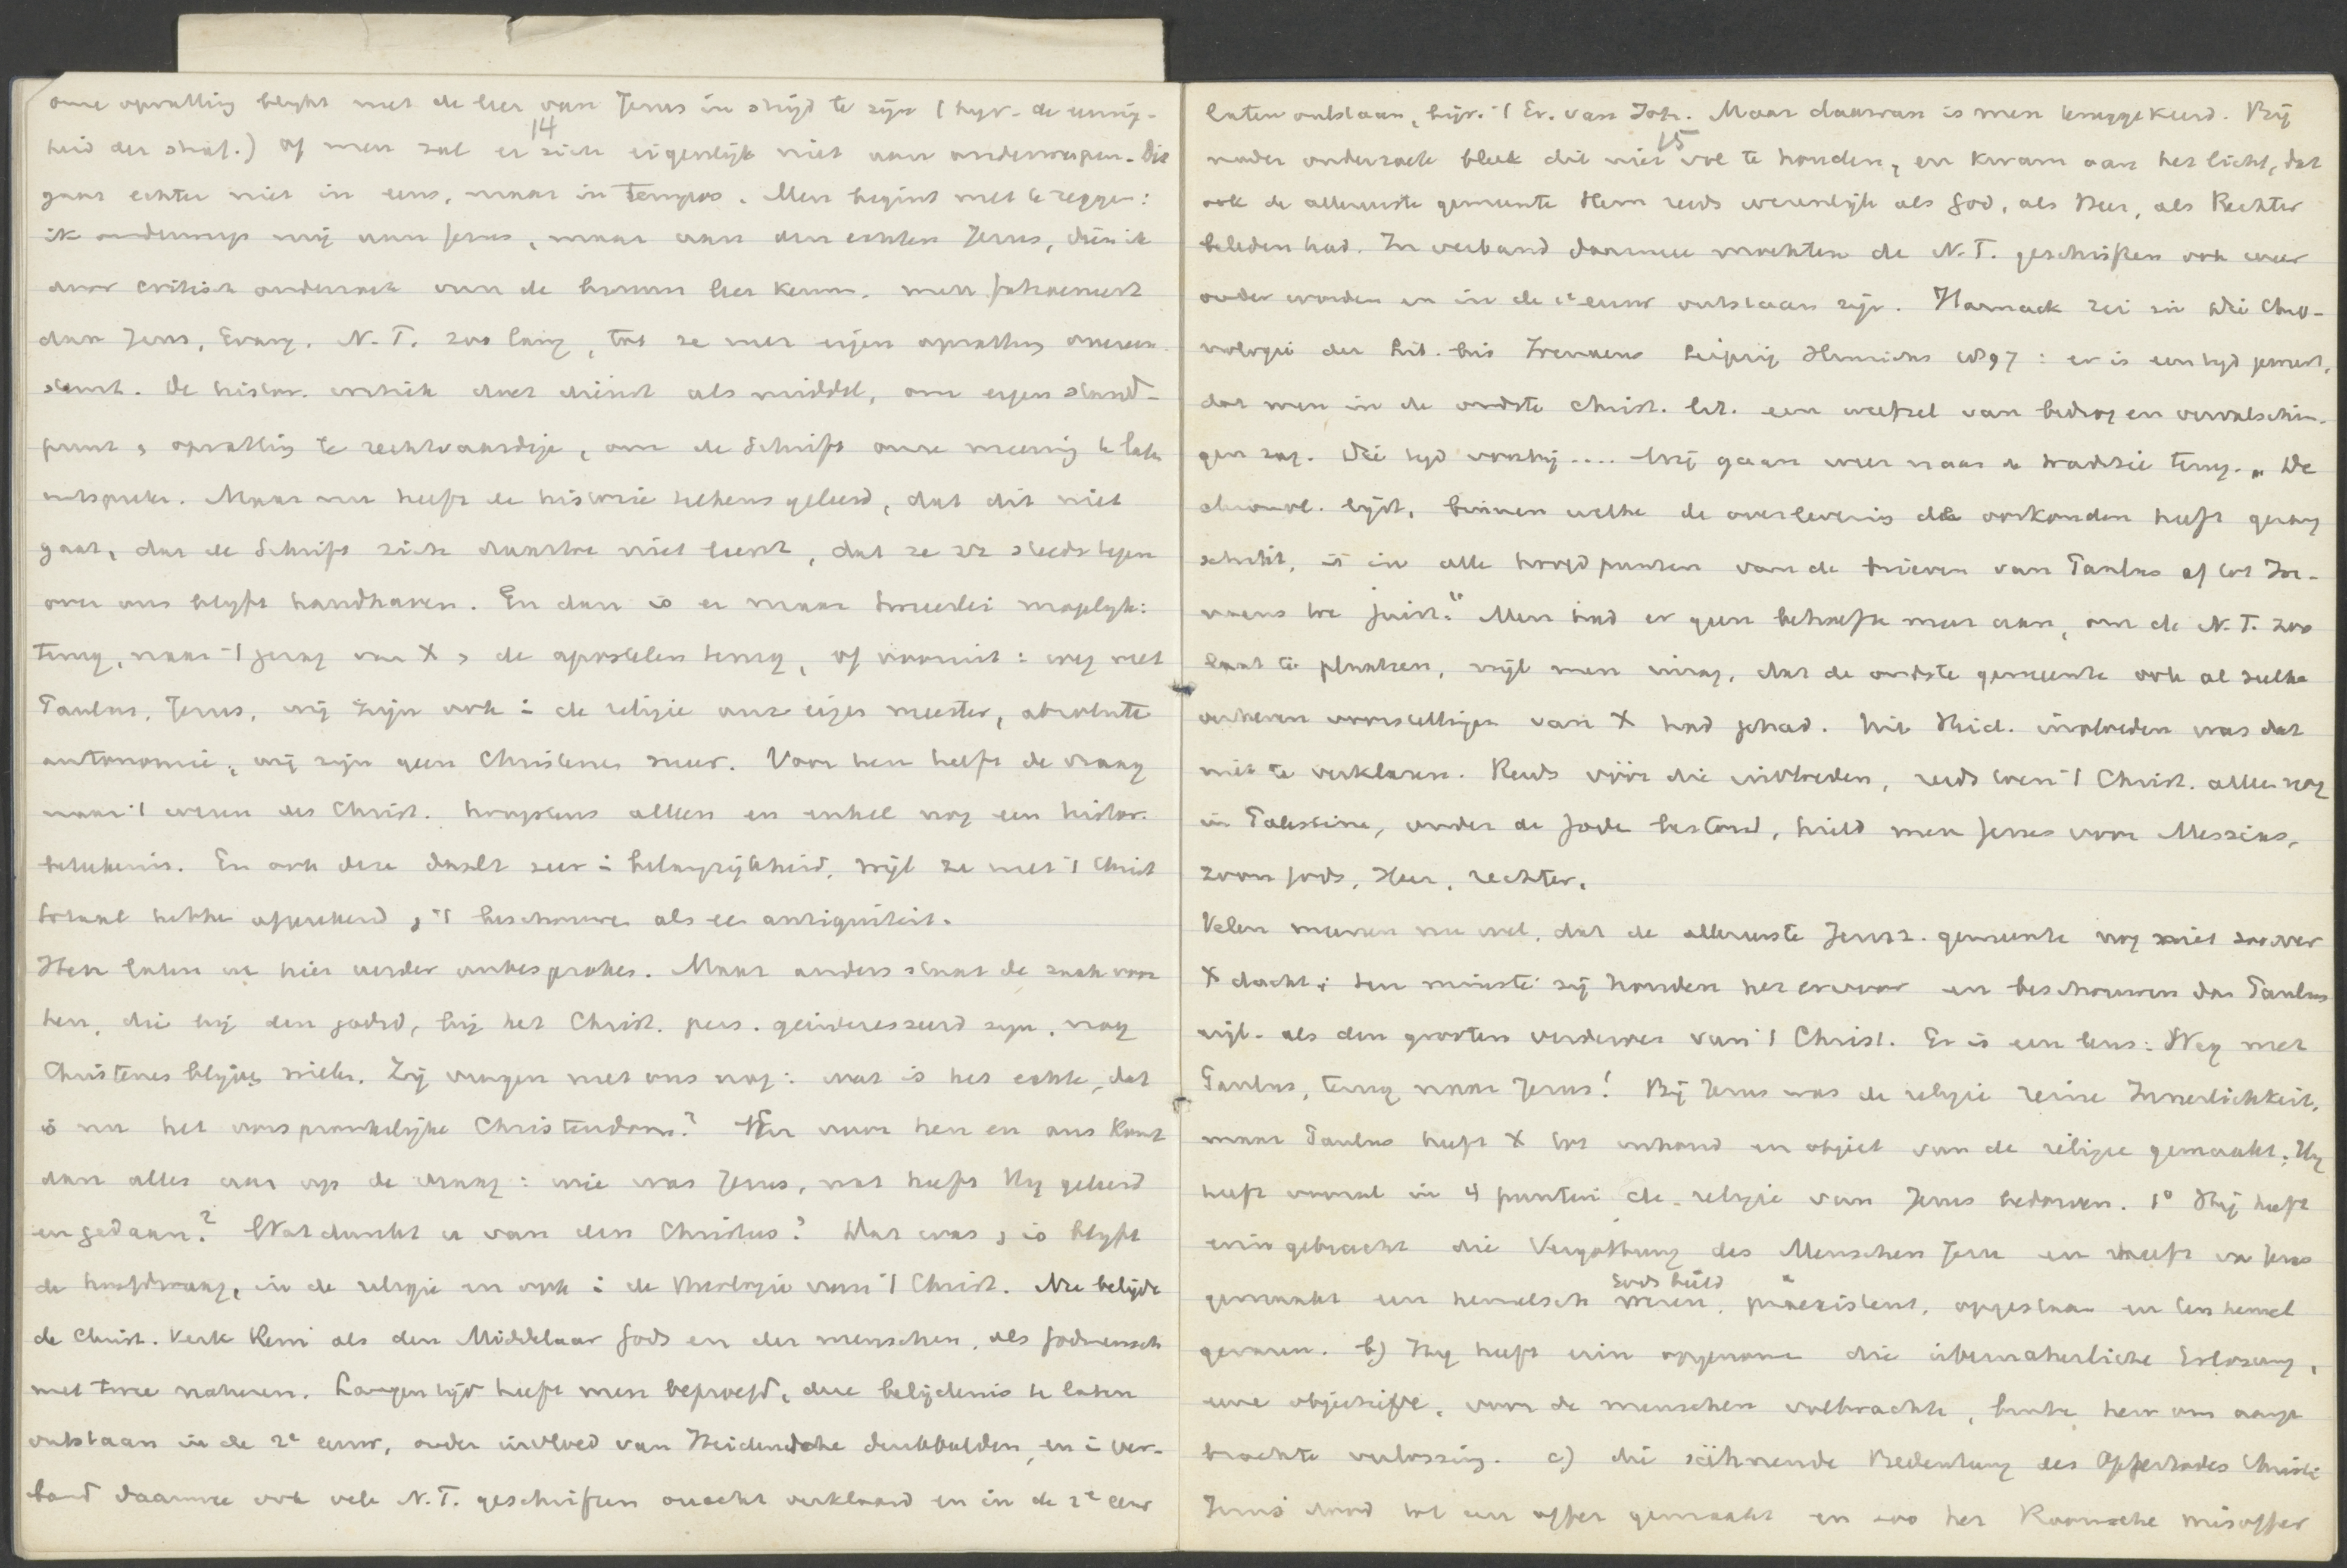 onze opvatting blijkt met de leer van Jezus in strijd te zijn (bijv. de eeuwig-
14
heid der straf.) of men zal er zich eigenlijk niet aan onderwerpen. Dit
gaat echter niet in eens, maar in tempos. Men begint met te zeggen:
ik onderwerp mij aan Jezus, maar aan den echten Jezus, dien ik
door critisch onderzoek van de bronnen leer kennen. men
dan Jezus, Evang. N.T. zoo lang, tot ze met eigen opvatting overeen
stemt. De histor. critiek doet dienst als middel, om eigen stand-
punt, opvatting te rechtvaardige, om de Schrift onze meening te laten
uitspreken. Maar nu heeft de historie telkens geleerd, dat dit niet
gaat, dat de Schrift zich daartoe niet leent, dat ze zich steeds tegen
over ons blijft handhaven. En dan is er maar tweeërlei mogelijk:
terug, naar 't getuig van X, de apostelen terug, of vooruit: weg met
Paulus, Jezus, wij zijn ook i de religie onze eigen meester, absolute
autonomie, wij zijn geen Christenen meer. Voor hen heeft de vraag
naar 't wezen des Christ. hoogstens alleen en enkel nog een histor.
beteekenis. En ook deze daalt zeer i belangrijkheid, wijl ze met 't Christ
totaal hebben afgerekend, 't beschouwen als ee antiquiteit.
Hen laten we hier verder onbesproken. Maar anders staat de zaak voor
hen, die bij den godsd, bij het Christ. pers. geïnteresseerd zijn, nog
Christenen blijve willen. Zij vragen met ons nog: wat is het echte, dat
is nu het oorspronkelijke Christendom? En voor hen en ons komt
dan alles aan op de vraag: wie was Jezus, wat heeft Hij geleerd
en gedaan? Wat dunkt u van den Christus? Dat was, is blijft
de hoofdvraag, in de religie en ook i de theologie van 't Christ. Nu belijdt
de Christ. Kerk Hem als den Middelaar Gods en der menschen, als Godmensch
met twee naturen. Langen tijd heeft men beproefd, deze belijdenis te laten
ontstaan in de 2e eeuw, onder invloed van Heidensche denkbeelden, en i ver-
band daarmee ook vele N.T. geschriften onecht verklaard en in de 2e eeuw
laten ontstaan, bijv. 't Ev. van Joh. Maar daarvan is men teruggekeerd. Bij
15
nader onderzoek bleek dit niet vol te houden, en kwam aan het licht, dat
ook de allereerste gemeente Hem reeds wezenlijk als God, als Heer, als Rechter
beleden had. In verband daarmee mochten de N.T. geschriften ook weer
ouder worden en in de 1e eeuw ontstaan zijn. Harnack zei in Die Chro-
nologie der Lit. bis Irenaeus Leipzig Hinrichs 1897: er is een tijd geweest,
dat men in de oudste Christ. lit. een weefsel van bedrog en vervalschin-
gen zag. Die tijd voorbij.... Wij gaan weer naar de traditie terug. „De
chronol. lijst, binnen welke de overlevering de oorkonden heeft gerang
schikt, is in alle hoofdpunten van de brieven van Paulus af tot Ire-
naeus toe juist." Men had er geen behoefte meer aan, om de N.T. zoo
laat te plaatsen, wijl men inzag, dat de oudste gemeente ook al zulke
verheven voorstellingen van X had gehad. Uit Heid. invloeden was dat
niet te verklaren. Reeds vóór die invloeden, reeds toen 't Christ. alleen nog
in Palestina, onder de Joden bestond, hield men Jezus voor Messias,
zoon Gods, Heer, rechter.
Velen meenen nu wel, dat de allereerste Jeruz. gemeente nog niet zoo over
X dacht; ten minste zij houden het ervoor en beschouwen dan Paulus
als den grooten verderver van 't Christ. Er is een leus: Weg met
Paulus, terug naar Jezus! Bij Jezus was de religie reine Innerlichkeit,
maar Paulus heeft X tot inhoud en object van de religie gemaakt. Hij
heeft vooral in 4 punten de religie van Jezus bedorven. 1° Hij heeft
erin gebracht die Vergottung des Menschen Jesu en heeft va Jezus
Gods beeld
gemaakt een hemelsch wezen, praeexistent, opgestaan en ten hemel
gevaren. b) Hij heeft erin opgenomen die übernatürliche Erlösung,
eene objectieve, voor de menschen volbrachte, buiten hen om aange
brachte verlossing. c) die sühnende Bedeutung des Opfertodes Christi
Jezus' dood tot een offer gemaakt en zoo het Roomsche misoffer